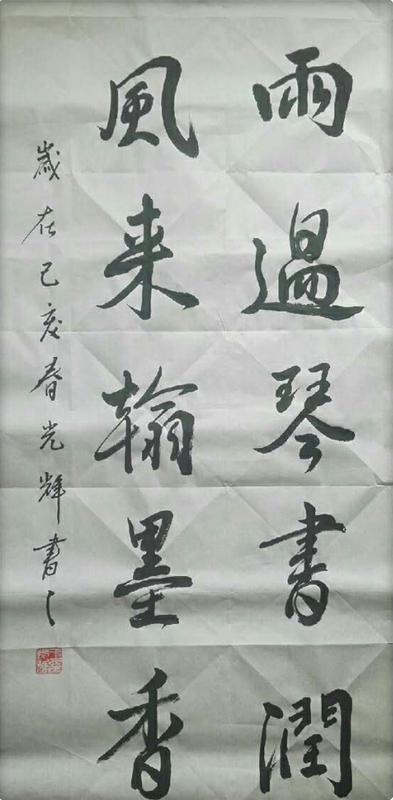 雨過琴書潤
風来翰墨香
歲在己亥春光輝書之